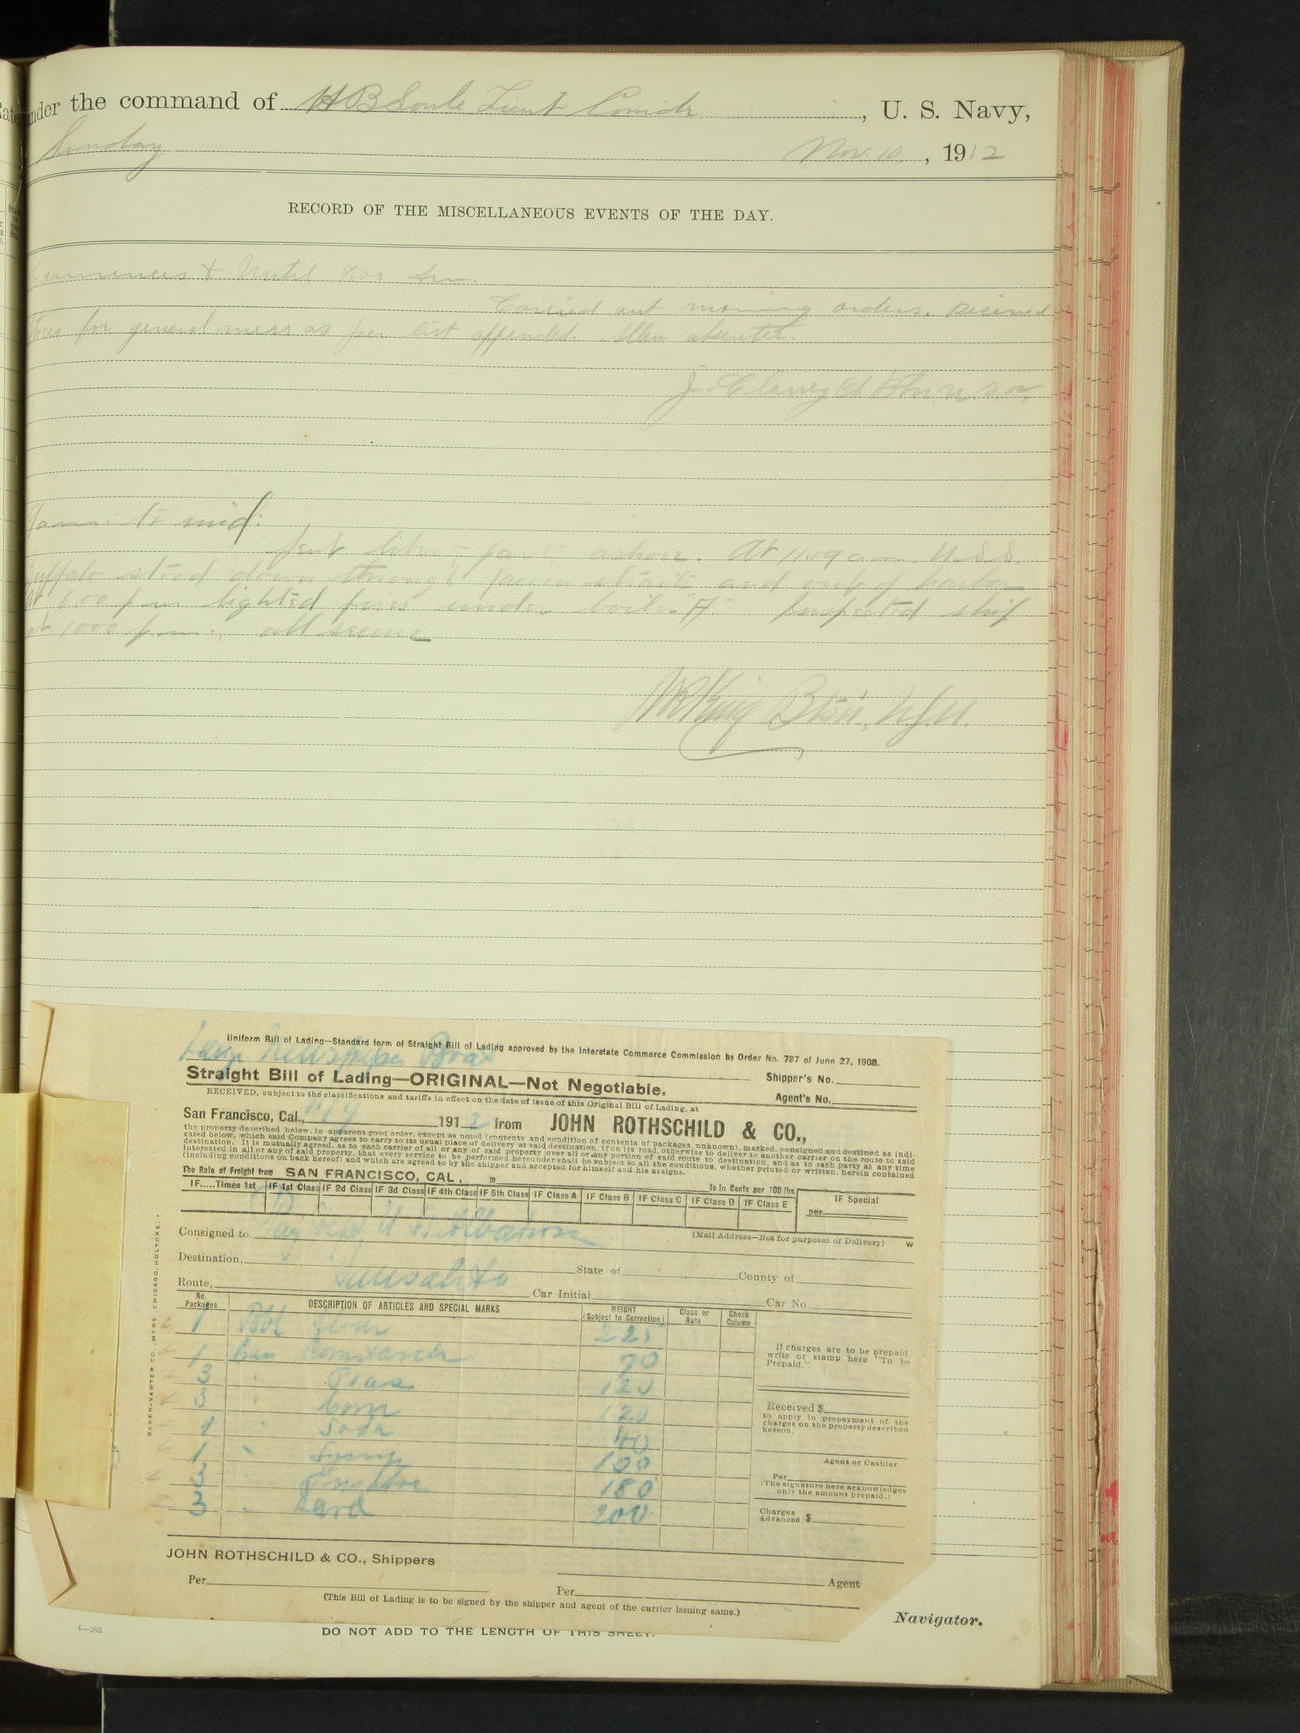 under the command of H B Soule Lieut Comdr , U. S. Navy,
Sunday Nov. 10, , 1912
RECORD OF THE MISCELLANEOUS EVENTS OF THE DAY.
Commences & Until 8.00 Am.
Carried out morning orders. Received
stores for general mess as per list appended. Men absentee.
J. Clancy Ch Btsn. U.S.N.
to mid:
Sent liberty party ashore. At 11.09 a.m. U.S.S.
Buffalo stood down through straits and out of harbor
At 6:00 p m lighted fires under boiler "A" Inspected ship
at 1000 p.m., all secure
King Btsn, U.S.N.
Uniform Bill of Lading—Standard form of Straight Bill of Lading approved by the Interstate Commerce Commission by Order No. 787 of June 27, 1908.
Boat
Straight Bill of Lading—ORIGINAL—Not Negotiable.
Shipper's No.
RECEIVED, subject to the classifications and tariffs in effect on the date of issue of this Original Bill of Lading, at
Agent's No.
San Francisco, Cal., 11/9 1912 from JOHN ROTHSCHILD & CO.,
the property described below, in apparent good order, except as noted (contents and condition of contents of packages unknown), marked, consigned and destined as indi-
cated below, which said Company agrees to carry to its usual place of delivery at said destination, if on its road, otherwise to deliver to another carrier on the route to said
destination. It is mutually agreed, as to each carrier of all or any of said property over all or any portion of said route to destination, and as to each party at any time
interested in all or any of said property, that every service to be performed hereunder shall be subject to all the conditions, whether printed or written, herein contained
(including conditions on back hereof) and which are agreed to by the shipper and accepted for himself and his assigns.
The Rate of Freight from SAN FRANCISCO, CAL., to
Is in Cents per 100 lbs.
IF.....Times 1st IF 1st Class IF 2d Class IF 3d Class IF 4th Class IF 5th Class IF Class A IF Class B IF Class C IF Class D IF Class E IF Special
per
Consigned to Pay U S Albatross
(Mail Address—Not for purposes of Delivery)
Destination, Sausalito State of County of
Route, Car Initial Car No.
No. Packages DESCRIPTION OF ARTICLES AND SPECIAL MARKS WEIGHT (Subject to Correction) Class or Rate Check Column
1 Bbl 225
1 Case Cornstarch 70
3 " Peas 120
3 " Corn 120
1 " Soda 40
1 " Syrup 100
3 " 180
3 " Lard 200
If charges are to be prepaid, write or stamp here "To be Prepaid."
Received $
to apply in prepayment of the charges on the property described hereon.
Agent or Cashier.
Per
(The signature here acknowledges only the amount prepaid.)
Charges Advanced $
BAKER-VAWTER CO., MFRS. CHICAGO, HOLYOKE.
JOHN ROTHSCHILD & CO., Shippers
Agent
Per Per
(This Bill of Lading is to be signed by the shipper and agent of the carrier issuing same.)
Navigator.
4—265
DO NOT ADD TO THE LENGTH OF THIS SHEET.